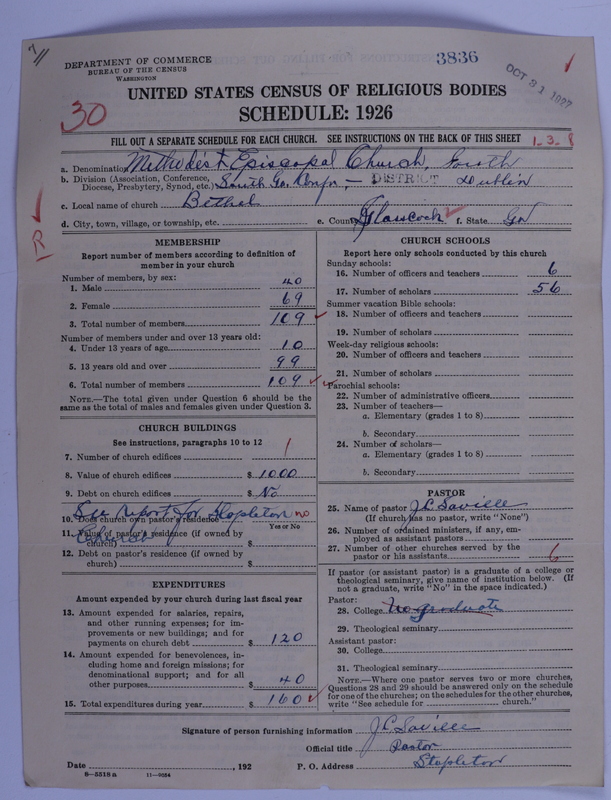 3836
OCT 31 1927
DEPARTMENT OF COMMERCE
BUREAU OF THE CENSUS
WASHINGTON
30
UNITED STATES CENSUS OF RELIGIOUS BODIES
SCHEDULE: 1926
FILL OUT A SEPARATE SCHEDULE FOR EACH CHURCH. SEE INSTRUCTIONS ON THE BACK OF THIS SHEET
1-3-8
a. Denomination Methodist Episcopal Church, South
b. Division (Association, Conference, Diocese, Presbytery, Synod, etc.) South Ga. Conf. — DISTRICT Dublin
c. Local name of church Bethel
d. City, town, village, or township, etc. e. County Glasscock f. State Ga
R
MEMBERSHIP
Report number of members according to definition of
member in your church
Number of members, by sex:
1. Male 40
2. Female 69
3. Total number of members 109
Number of members under and over 13 years old:
4. Under 13 years of age 10
5. 13 years old and over 99
6. Total number of members 109
NOTE.—The total given under Question 6 should be the
same as the total of males and females given under Question 3.
CHURCH BUILDINGS
See instructions, paragraphs 10 to 12
7. Number of church edifices 1
8. Value of church edifices $ 1000
9. Debt on church edifices $ No
See report for Stapleton
10. Does church own pastor's residence no
Yes or No
Church
11. Value of pastor's residence (if owned by
church) $
12. Debt on pastor's residence (if owned by
church) $
EXPENDITURES
Amount expended by your church during last fiscal year
13. Amount expended for salaries, repairs,
and other running expenses; for im-
provements or new buildings; and for
payments on church debt $ 120
14. Amount expended for benevolences, in-
cluding home and foreign missions; for
denominational support; and for all
other purposes $ 40
15. Total expenditures during year $ 160
CHURCH SCHOOLS
Report here only schools conducted by this church
Sunday schools:
16. Number of officers and teachers 6
17. Number of scholars 56
Summer vacation Bible schools:
18. Number of officers and teachers
19. Number of scholars
Week-day religious schools:
20. Number of officers and teachers
21. Number of scholars
Parochial schools:
22. Number of administrative officers
23. Number of teachers—
a. Elementary (grades 1 to 8)
b. Secondary
24. Number of scholars—
a. Elementary (grades 1 to 8)
b. Secondary
PASTOR
25. Name of pastor J.C. Saville
(If church has no pastor, write "None")
26. Number of ordained ministers, if any, em-
ployed as assistant pastors
27. Number of other churches served by the
pastor or his assistants 6
If pastor (or assistant pastor) is a graduate of a college or
theological seminary, give name of institution below. (If
not a graduate, write "No" in the space indicated.)
Pastor:
28. College No graduate
29. Theological seminary
Assistant pastor:
30. College
31. Theological seminary
NOTE.—Where one pastor serves two or more churches,
Questions 28 and 29 should be answered only on the schedule
for one of the churches; on the schedules for the other churches,
write "See schedule for church."
Signature of person furnishing information J.C. Saville
Official title Pastor
Date , 192 P. O. Address Stapleton
8—5518a 11—9054